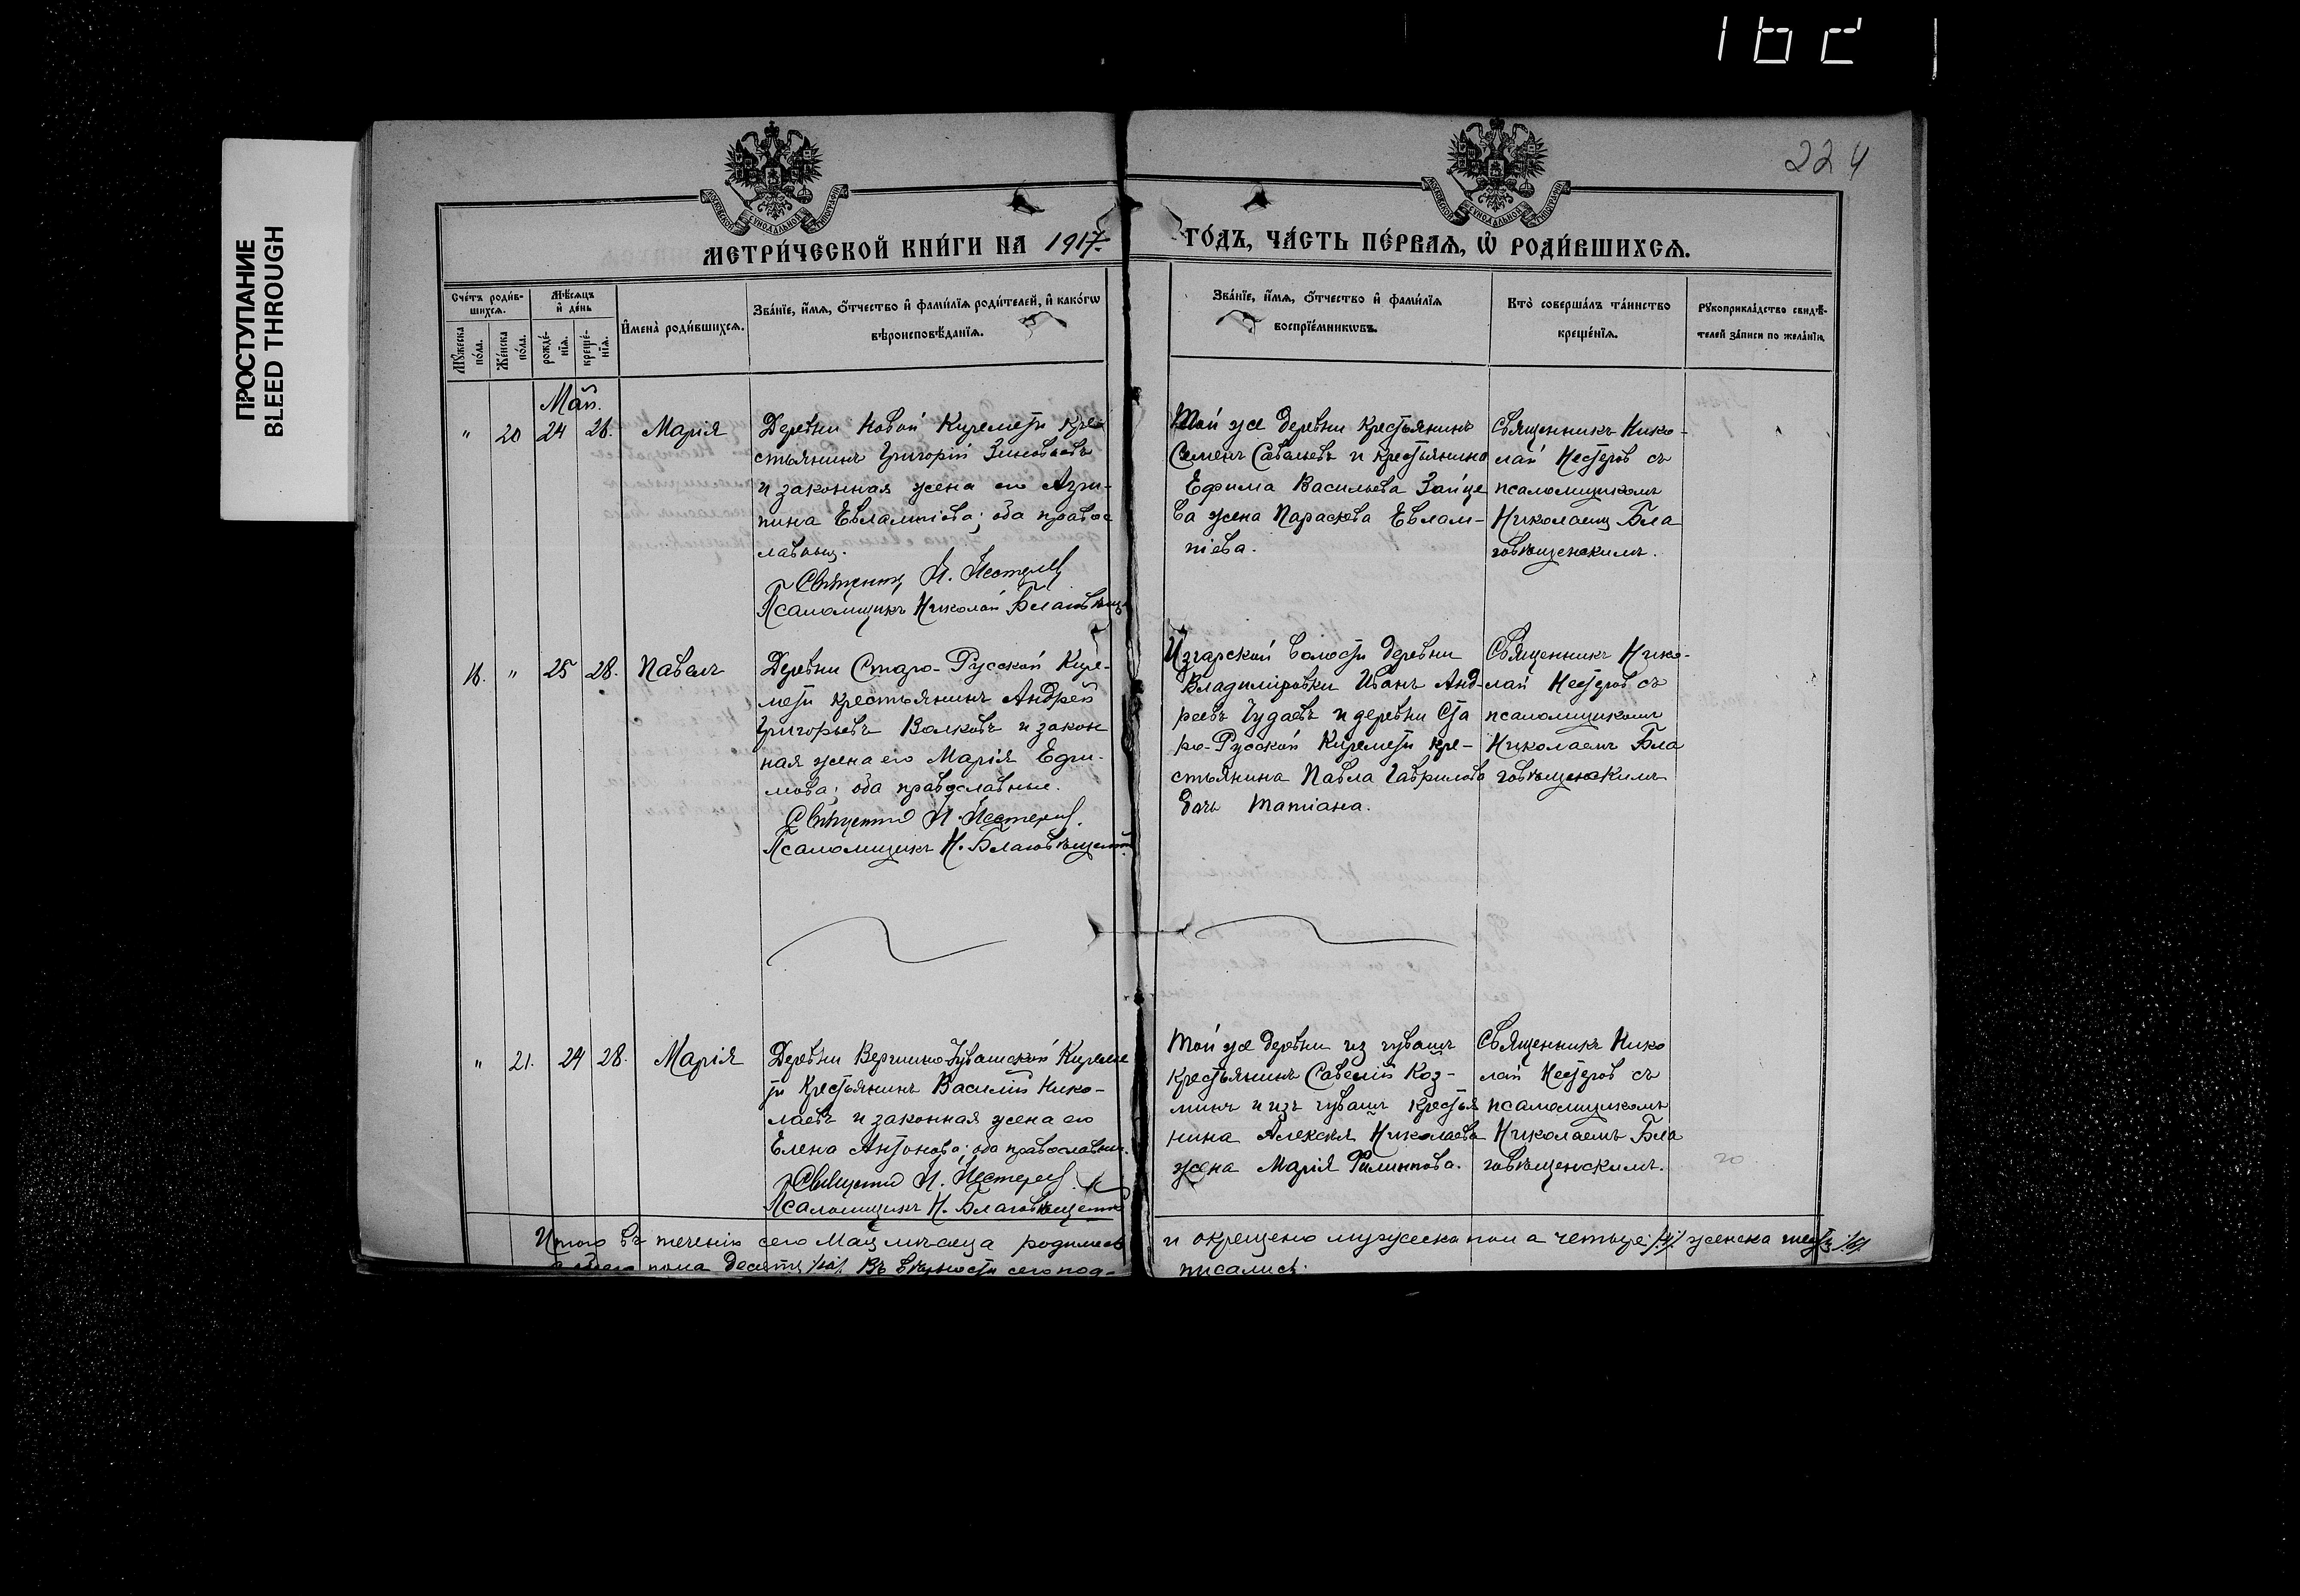 ПРОСТУПАНИЕ
BLEED THROUGH
224
МЕТРИ́ЧЕСКОЙ КНИ́ГИ НА 1917
ГО́ДЪ, ЧА́СТЬ ПЕ́РВАѦ, Ѽ РОДИ́ВШИХСѦ.
Сче́тъ роди́в-
шихсѧ.
Мꙋ́жеска
по́ла.
Же́нска
по́ла.
Мѣ́сѧцъ
и҆ де́нь
рожде́-
нїѧ.
креще́-
нїѧ.
И҆мена̀ роди́вшихсѧ.
Зва́нїе, и҆́мѧ, ѻ҆́тчество и҆ фами́лїѧ роди́телей, и҆ како́гѡ
вѣроисповѣ́данїѧ.
Зва́нїе, и҆́мѧ, ѻ҆́тчество и҆ фами́лїѧ
воспрїе́мникѡвъ.
Кто̀ соверша́лъ та́инство
креще́нїѧ.
Рꙋкоприкла́дство свидѣ́-
телей за́писи по жела́нїю.
Май.
" 20 24 28. Марія
Деревни Новой Киремети кре
стьянинъ Григорій Зиновьевъ
и законная жена его Агри-
пина Евлампіева; оба правос
лавныя.
Священникъ Н. Нестеровъ
Псаломщикъ Николай Благовѣщ
Той же деревни крестьянинъ
Семенъ Савельевъ и крестьянина
Ефима Васильева Зайце
ва жена Параскева Евлам-
піева.
Священникъ Нико-
лай Нестеровъ съ
псаломщикомъ
Николаемъ Бла
говѣщенскимъ.
16. " 25 28. Павелъ
Деревни Старо-Русской Кире-
мети крестьянинъ Андрей
Григорьевъ Волковъ и закон
ная жена его Марія Ефи-
мова; оба православные.
Священникъ Н. Нестеровъ.
Псаломщикъ Н. Благовѣщенскій
Изгарской волости деревни
Владиміровки Иванъ Анд-
реевъ Чудаевъ и деревни Ста
ро-Русской Киремети кре-
стьянина Павла Гаврилова
дочь Татіана.
Священникъ Нико-
лай Нестеровъ съ
псаломщикомъ
Николаемъ Бла
говѣщенскимъ
" 21. 24 28. Марія
Деревни Вершино-Чувашской Киреме
ти крестьянинъ Василій Нико-
лаевъ и законная жена его
Елена Антонова; оба православные.
Священникъ Н. Нестеровъ
Псаломщикъ Н. Благовѣщенскій
Той же деревни из чувашъ
крестьянинъ Савелій Коз-
минъ и изъ чувашъ крестья
нина Алексѣя Николаева
жена Марія Филиппова.
Священникъ Нико
лай Нестеровъ съ
псаломщикомъ
Николаемъ Бла
говѣщенскимъ.
20
Итого въ теченіи сего Мая мѣсяца родилось
и окрещено мужеска пола четыре /4/ женска шесть /6/
обоего пола десять /10/. Въ вѣрности сего под-
писались: